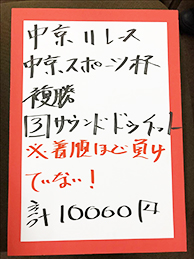 中京11レース
中京スポーツ杯
複勝
③サウンドドゥイット
※着順ほど負け
ていない!
計10000円